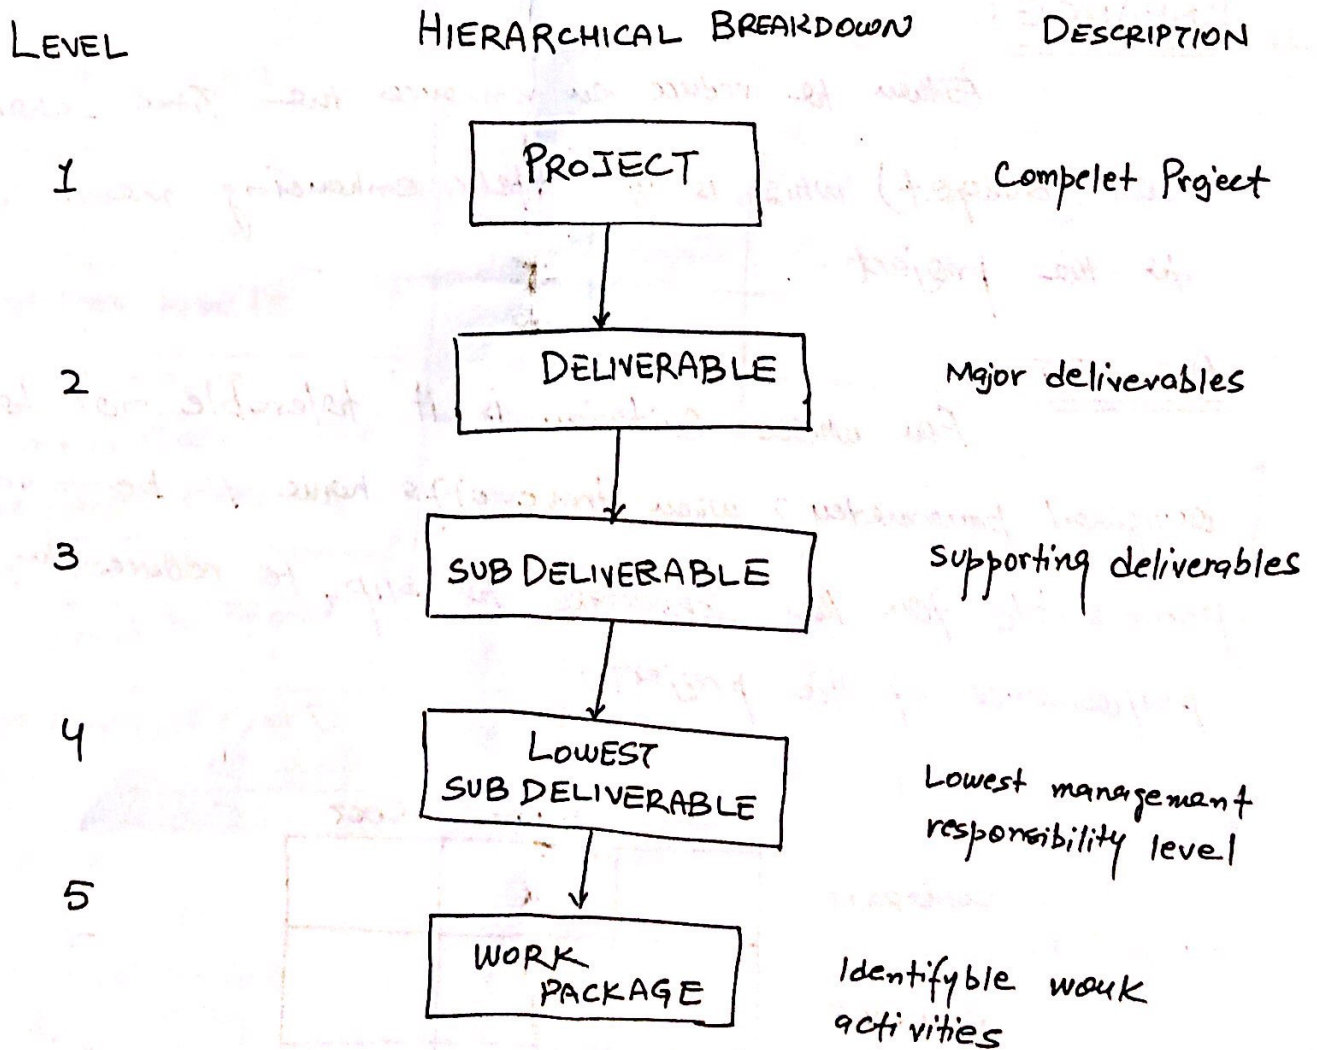 LEVEL HIERARCHICAL BREAKDOWN DESCRIPTION
1 PROJECT Compelet Project
2 DELIVERABLE Major deliverables
3 SUB DELIVERABLE Supporting deliverables
4 LOWEST
SUB DELIVERABLE Lowest management
responsibility level
5 WORK
PACKAGE Identifyble work
activities